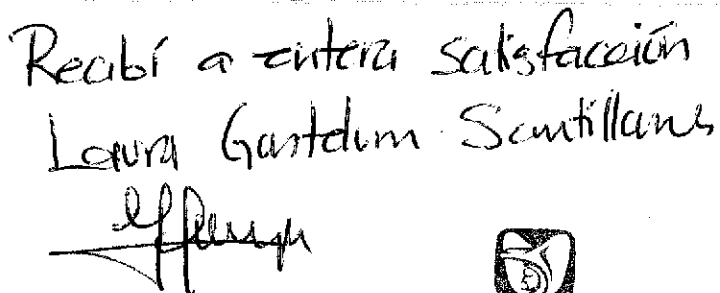 Recibí a entera satisfacción
Laura Gastelum Santillanes